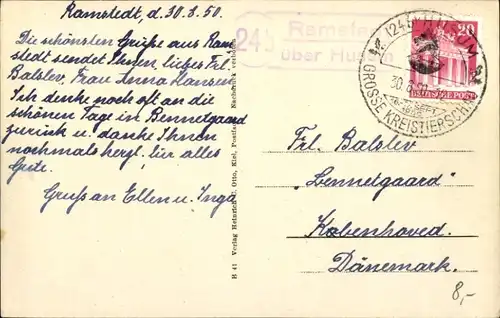 Ramstedt, d. 30.8.50.
Die schönsten Grüße aus Ram
stedt sendet Ihnen, liebes Frl.
Balslev, Frau Anna Hansen.
Ich denke noch oft an die
schönen Tage in Bennetgaard
zurück u. danke Ihnen
nochmals herzl. für alles
Gute.
Gruß an Ellen u. Inge
H 41 Verlag Heinrich C. Otto, Kiel, Postfach Nachdruck verboten
24b
über Husum
20
DEUTSCHE POST
GROSSE KREISTIERSCHAU
Frl. Balslev
"Bennetgaard"
Kobenhoved.
Dänemark.
8,-